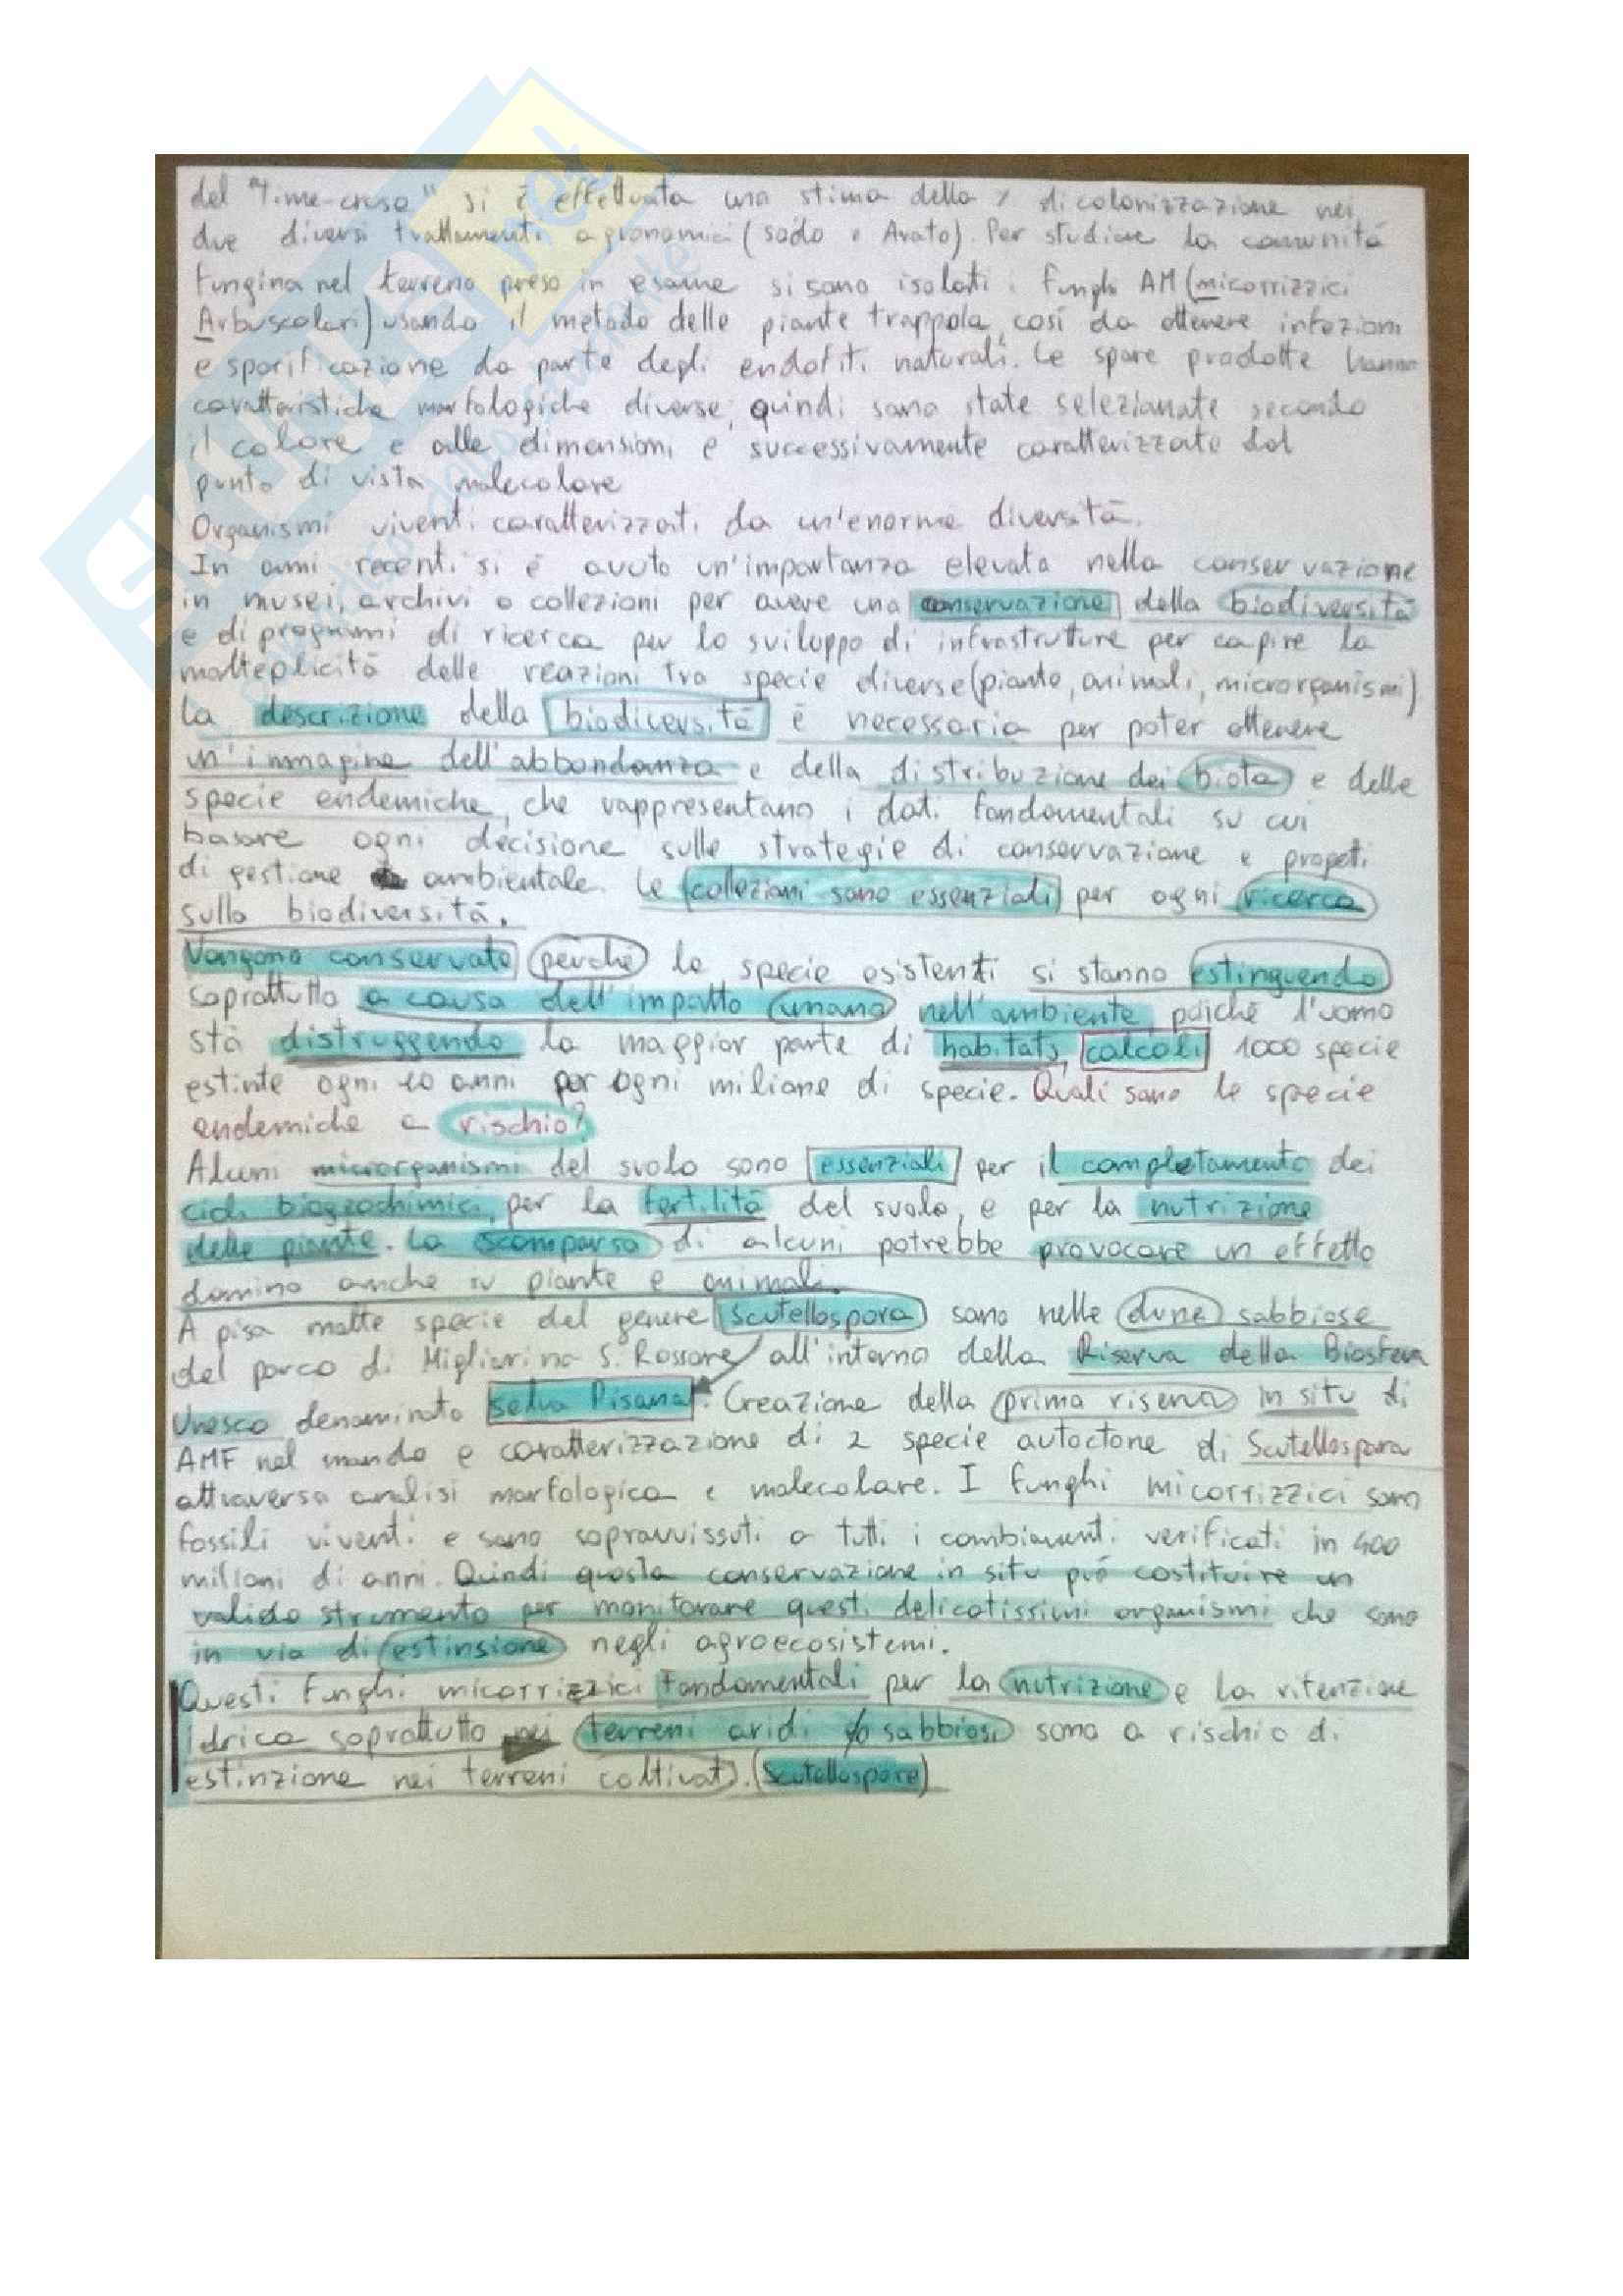 del "Time-cruse" si è effettuata una stima della % di colonizzazione nei
due diversi trattamenti agronomici (sodo e Arato). Per studiare la comunità
fungina nel terreno preso in esame si sono isolati i funghi AM (micorrizzici
Arbuscolari) usando il metodo delle piante trappola, così da ottenere infezioni
e sporificazione da parte degli endofiti naturali. Le spore prodotte hanno
caratteristiche morfologiche diverse, quindi sono state selezionate secondo
il colore e alle dimensioni e successivamente caratterizzate dal
punto di vista molecolare
Organismi viventi caratterizzati da un'enorme diversità.
In anni recenti si è avuto un'importanza elevata nella conservazione
in musei, archivi o collezioni per avere una conservazione della biodiversità
e di programmi di ricerca per lo sviluppo di infrastrutture per capire la
molteplicità delle reazioni tra specie diverse (piante, animali, microrganismi)
La descrizione della biodiversità è necessaria per poter ottenere
un'immagine dell'abbondanza e della distribuzione dei biota e delle
specie endemiche, che rappresentano i dati fondamentali su cui
basare ogni decisione sulle strategie di conservazione e progeti
di gestione ambientale. Le collezioni sono essenziali per ogni ricerca
sulla biodiversità.
Vengono conservate perché le specie esistenti si stanno estinguendo
soprattutto a causa dell'impatto umano nell'ambiente, poiché l'uomo
stà distruggendo la maggior parte di habitats, calcoli 1000 specie
estinte ogni 10 anni per ogni milione di specie. Quali sono le specie
endemiche a rischio?
Alcuni microrganismi del suolo sono essenziali per il completamento dei
cicli biogeochimici, per la fertilità del suolo, e per la nutrizione
delle piante. La scomparsa di alcuni potrebbe provocare un effetto
domino anche su piante e animali.
A pisa molte specie del genere Scutellospora sono nelle dune sabbiose
del parco di Migliarino S. Rossore all'interno della Riserva della Biosfera
Unesco denominato selva Pisana. Creazione della prima riserva in situ di
AMF nel mondo e caratterizzazione di 2 specie autoctone di Scutellospora
attraverso analisi morfologica e molecolare. I funghi micorrizzici sono
fossili viventi e sono sopravvissuti a tutti i cambiamenti verificati in 400
milioni di anni. Quindi questa conservazione in situ può costituire un
valido strumento per monitorare questi delicatissimi organismi che sono
in via di estinsione negli agroecosistemi.
Questi funghi micorrizzici fondamentali per la nutrizione e la ritenzione
idrica soprattutto nei terreni aridi o sabbiosi sono a rischio di
estinzione nei terreni coltivati. (Scutellospora)